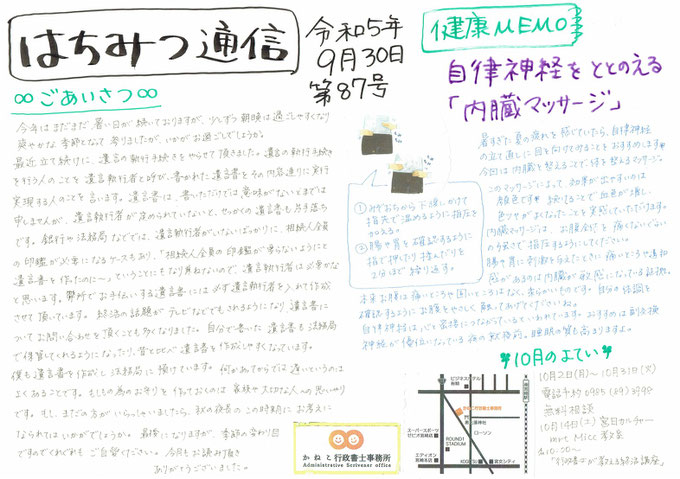 はちみつ通信
令和5年
9月30日
第87号
∞ごあいさつ∞
今年はまだまだ暑い日が続いておりますが、少しずつ朝晩は過ごしやすくなり
爽やかな季節となって参りましたが、いかがお過ごしでしょうか。
最近立て続けに、遺言の執行手続きをやらせて頂きました。遺言の執行手続き
を行う人のことを遺言執行者と呼び、書かれた遺言書をその内容通りに実行
実現する人のことを言います。遺言書は、書いただけでは意味がないとまでは
申しませんが、遺言執行者が決められていないと、せっかくの遺言書も片手落ち
です。銀行や法務局などでは、遺言執行者がいないばっかりに、相続人全員
の印鑑が必要になるケースもあり、「相続人全員の印鑑が要らないようにと
遺言書を作ったのに〜」ということにもなり兼ねないので、遺言執行者は必要かな
と思います。弊所でお手伝いする遺言書には必ず遺言執行者を入れて作成
させて頂いています。終活の話題がテレビなどでもされるようになり、遺言書に
ついてお問い合わせを頂くことも多くなりました。自分で書いた遺言書も法務局
で保管してくれるようになったり、昔と比べ遺言書を作成しやすくなっています。
僕も遺言書を作成し法務局に預けています。何かあてからでは遅いというのは
よくあることです。もしもの為のお守りを作っておくのは家族や大切な人への思いやり
です。もし、まだの方がいらっしゃいましたら、秋の夜長のこの時期にお考えに
なられてはいかがでしょうか。最後になりますが、季節の変わり目
ですのでくれぐれもご自愛ください。今月もお読み頂き
ありがとうございました。
健康MEMO
自律神経をととのえる
「内臓マッサージ」
暑すぎた夏の疲れを感じていたら、自律神経
の立て直しに目を向けてみることをおすすめします。
今回は内臓を整えることで体を整えるマッサージ。
このマッサージによって、効果が出やすいのは
顔色です。続けることで血色が増し、
色ツヤがよくなったことを実感していただけます。
内臓マッサージは、お腹全体を痛くないぐらい
の強さで指圧するようにしてください。
腸や胃に刺激を与えたときに痛いところや違和
感があるのは内臓が敏感になっている証拠。
①みぞおちから下腹にかけて
指先で温めるように指圧を
加える。
②腸や胃を確認するように
指で押したり揉んだりを
2分ほど繰り返す。
本来お腹は痛いところや固いところはなく、柔らかいものです。自分の体調を
確認するようにお腹をやさしく触ってあげてくださいね。
自律神経は心と密接につながっているといわれています。おすすめは副交感
神経が優位になっている夜の就寝前。睡眠の質も高まりますよ。
10月のよてい
10月2日(月)〜10月31日(火)
電話予約0985
無料相談
10月14日(土)宮日カルチャー
mrt micc教室
10:00〜
かねこ行政書士事務所
Administrative Scrivener office
ビジネスホテル
かねこ行政書士事務所
ローソン
スーパースポーツ
ゼビオ宮崎店
ROUND1
STADIUM
エディオン
宮崎本店
宮交シティ